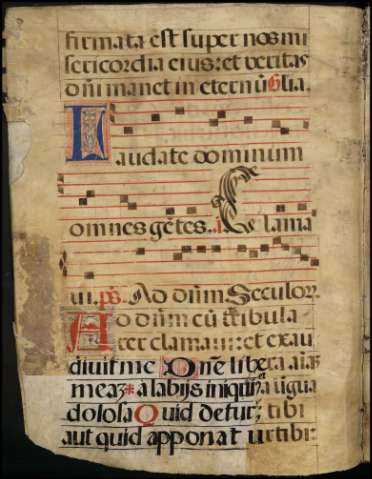 firmata est super nos mi
sericordia eius: et veritas
dñi manet in eternũ Glia.
Laudate dominum
omnes gẽtes. i Clama
ui. ps. Ad dñm Seculor.
Ad dñm cũ tribula
rer clamaui: et exau
diuit me Dñe libera aĩaz
meaz * a labijs iniquis a ligua
dolosa Quid detur tibi
aut quid apponat ur tibi: